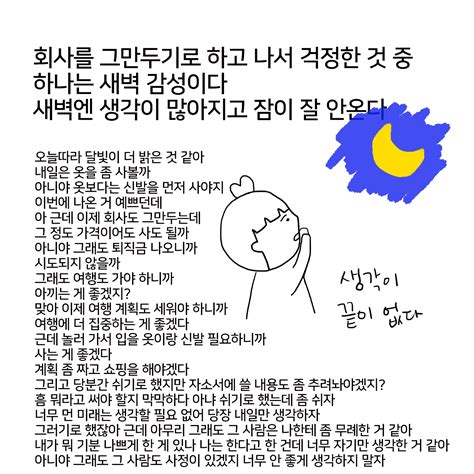 회사를 그만두기로 하고 나서 걱정한 것 중
하나는 새벽 감성이다
새벽엔 생각이 많아지고 잠이 잘 안온다
오늘따라 달빛이 더 밝은 것 같아
내일은 옷을 좀 사볼까
아니야 옷보다는 신발을 먼저 사야지
이번에 나온 거 예쁘던데
아 근데 이제 회사도 그만두는데
그 정도 가격이어도 사도 될까
아니야 그래도 퇴직금 나오니까
시도되지 않을까
그래도 여행도 가야 하니까
아끼는 게 좋겠지?
맞아 이제 여행 계획도 세워야 하니까
여행에 더 집중하는 게 좋겠다
근데 놀러 가서 입을 옷이랑 신발 필요하니까
사는 게 좋겠다
계획 좀 짜고 쇼핑을 해야겠다
그리고 당분간 쉬기로 했지만 자소서에 쓸 내용도 좀 추려놔야겠지?
흠 뭐라고 써야 할지 막막하다 아냐 쉬기로 했는데 좀 쉬자
너무 먼 미래는 생각할 필요 없어 당장 내일만 생각하자
그러기로 했잖아 근데 아무리 그래도 그 사람은 나한테 좀 무례한 거 같아
내가 뭐 기분 나쁘게 한 게 있나 나는 한다고 한 건데 너무 자기만 생각한 거 같아
아니야 그래도 그 사람도 사정이 있겠지 너무 안 좋게 생각하지 말자
생각이
끝이 없다